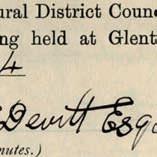 ural District Counc
ng held at Glent
4
Devitt Esq
nutes.)